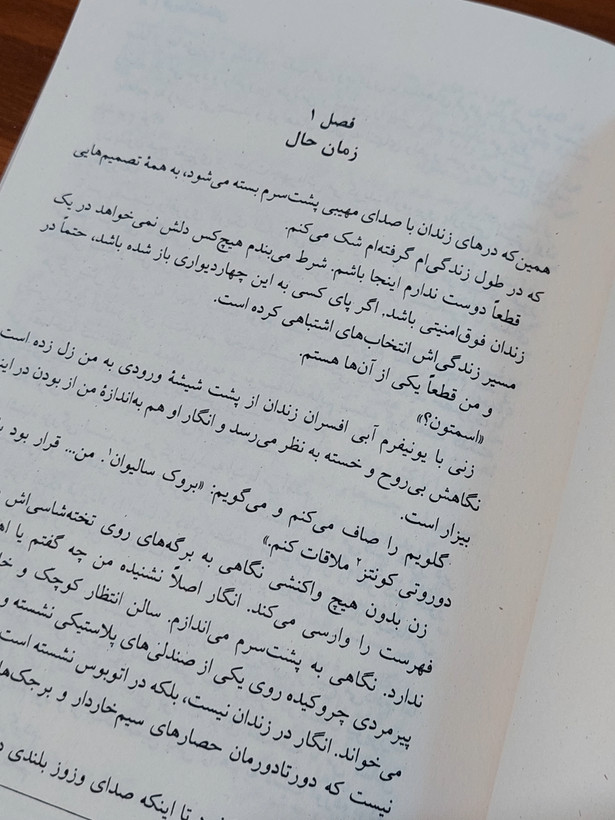 فصل ۱
زمان حال
همین‌که درهای زندان با صدای مهیبی پشت‌سرم بسته می‌شود، به همهٔ تصمیم‌هایی
که در طول زندگی‌ام گرفته‌ام شک می‌کنم.
قطعاً دوست ندارم اینجا باشم. شرط می‌بندم هیچ‌کس دلش نمی‌خواهد در یک
زندان فوق‌امنیتی باشد. اگر پای کسی به این چهاردیواری باز شده باشد، حتماً در
مسیر زندگی‌اش انتخاب‌های اشتباهی کرده است.
و من قطعاً یکی از آن‌ها هستم.
«اسمتون؟»
زنی با یونیفرم آبی افسران زندان از پشت شیشهٔ ورودی به من زل زده است
نگاهش بی‌روح و خسته به نظر می‌رسد و انگار او هم به‌اندازهٔ من از بودن در
بیزار است.
گلویم را صاف می‌کنم و می‌گویم: «بروک سالیوان۱. من... قرار بود
دوروتی کونتز۲ ملاقات کنم.»
زن بدون هیچ واکنشی نگاهی به برگه‌های روی تخته‌شاسی‌اش
فهرست را وارسی می‌کند. انگار اصلاً نشنیده من چه گفتم یا
ندارد. نگاهی به پشت‌سرم می‌اندازم. سالن انتظار کوچک و
پیرمردی چروکیده روی یکی از صندلی‌های پلاستیکی نشسته و
می‌خواند. انگار در زندان نیست، بلکه در اتوبوس نشسته است
نیست که دورتادورمان حصارهای سیم‌خاردار و
تا اینکه صدای وزوز بلندی